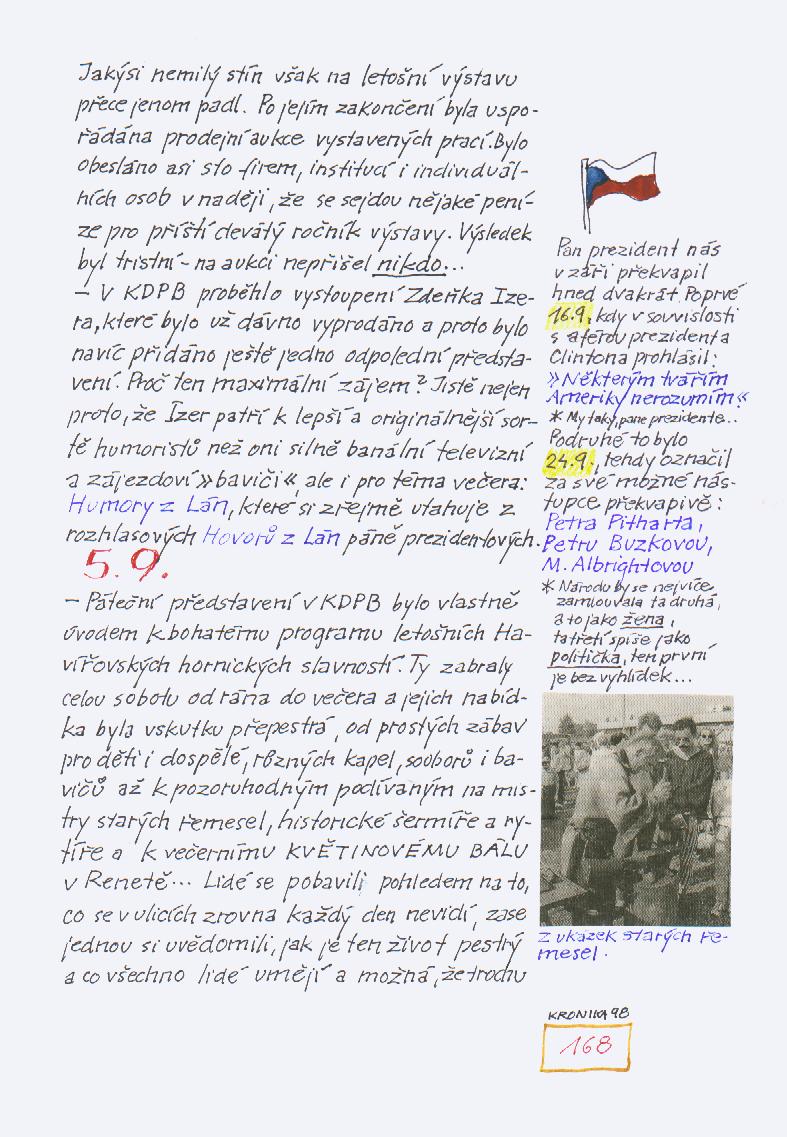 Jakýsi nemilý stín však na letošní výstavu
přece jenom padl. Po jejím zakončení byla uspo-
řádána prodejní aukce vystavených prací. Bylo
obesláno asi sto firem, institucí i individuál-
ních osob v naději, že se sejdou nějaké pení-
ze pro příští devátý ročník výstavy. Výsledek
byl tristní - na aukci nepřišel nikdo...
- V KDPB proběhlo vystoupení Zdeňka Ize-
ra, které bylo už dávno vyprodáno a proto bylo
navíc přidáno ještě jedno odpolední předsta-
vení. Proč ten maximální zájem? Jistě nejen
proto, že Izer patří k lepší a originálnější sor-
tě humoristů než oni silně banální televizní
a zájezdoví »baviči«, ale i pro téma večera:
Humory z Lán, které si zřejmě utahuje z
rozhlasových Hovorů z Lán páně prezidentových.
5.9.
- Páteční představení v KDPB bylo vlastně
úvodem k bohatému programu letošních Ha-
vířovských hornických slavností. Ty zabraly
celou sobotu od rána do večera a jejich nabíd-
ka byla vskutku přepestrá, od prostých zábav
pro děti i dospělé, různých kapel, souborů i ba-
vičů až k pozoruhodným podívaným na mis-
try starých řemesel, historické šermíře a ry-
tíře a k večernímu KVĚTINOVÉMU BÁLU
v Renetě... Lidé se pobavili pohledem na to,
co se v ulicích zrovna každý den nevidí, zase
jednou si uvědomili, jak je ten život pestrý
a co všechno lidé umějí a možná, že trochu
Pan prezident nás
v září překvapil
hned dvakrát. Poprvé
16.9., kdy v souvislosti
s aférou prezidenta
Clintona prohlásil:
»Některým tvářím
Ameriky nerozumím«
* My taky, pane prezidente...
Podruhé to bylo
24.9., tehdy označil
za své možné nás-
tupce překvapivě:
Petra Pitharta,
Petru Buzkovou,
M. Albrightovou
* Národu by se nejvíce
zamlouvala ta druhá,
a to jako žena,
ta třetí spíše jako
politička, ten první
je bez vyhlídek...
Z ukázek starých ře-
mesel.
KRONIKA 98
168